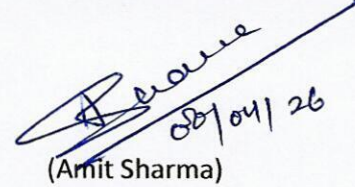 08/04/26
(Amit Sharma)